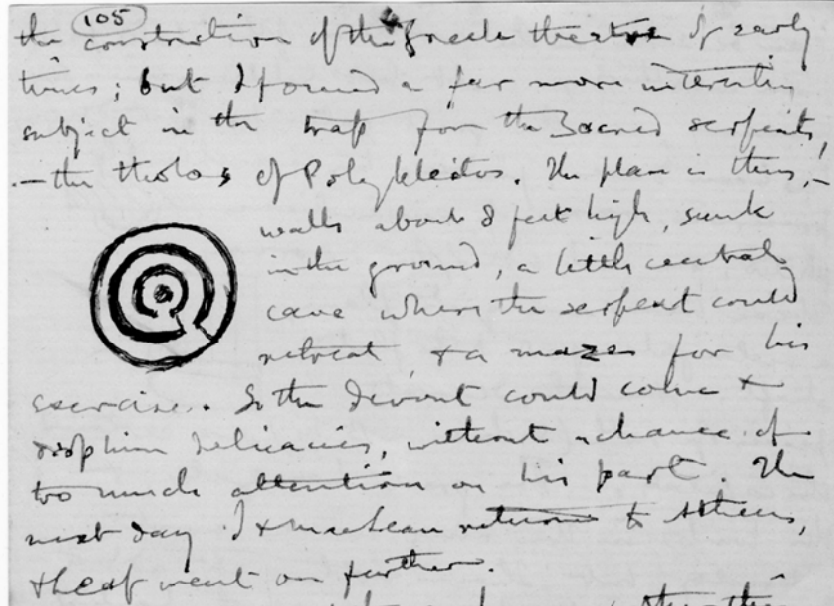 105
the construction of the Greek theatre of early
times; but I found a far more interesting
subject in the trap for the Sacred serpents,
— the tholos of Polykleitos. The plan is thus,—
walls about 8 feet high, sunk
in the ground, a little central
cave where the serpent could
retreat, & a maze for his
exercise. So the devout could come &
drop him delicacies, without a chance of
too much attention on his part. The
next day I & MacLean returned to Athens,
& went on further.